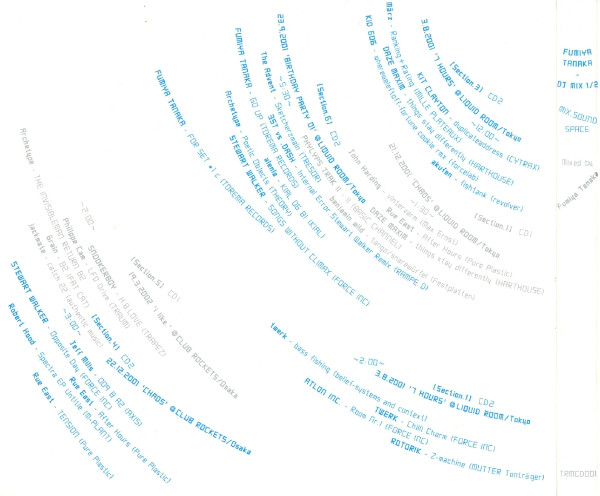 [Section.3] CD2
3.8.2001 '7 HOURS' @LIQUID ROOM/Tokyo
~12:00~
KIT CLAYTON - duplicateaddress (CYTRAX)
DAZE MAXIM - things stay differently (HARTHOUSE)
März - Ranking+Rating (MILLE PLATEAUX)
KID 606 - (forcelab)
akufen - fishtank (revolver)
[Section.6] CD2
23.9.2001 'BIRTHDAY PARTY 01' @LIQUID ROOM/Tokyo
~5:30~
The Advent - Sketcherzeem (TRESOR)
3ST vs .DASH - Internal Error Stewart Walker Remix (RAMPE D)
FUMIYA TANAKA - GO UP (TOREMA RECORDS)
alenia - KIAL 06 B1 (KIAL)
STEWART WALKER - SONGS WITHOUT CLIMAX (FORCE INC)
Archetype - Poetic Objects (THEORY)
FUMIYA TANAKA - FOR SET #1 c (TOREMA RECORDS)
[Section.1] CD1
21.12.2001 'CHAOS' @LIQUID ROOM/Tokyo
~1:30~
Rue East - After Hours (Pure Plastic)
DAZE MAXIM - things stay differently (HARTHOUSE)
John Harding - (Max Ernst)
PHYLYPS TRAK II - (BASIC CHANNEL)
benjamin wild - (Festplatten)
[Section.5] CD1
19.3.2002 'I like.' @CLUB ROCKETS/Osaka
~2:00~
SNOOKERBOY - H.B.LOVE (TRAPEZ)
Philippe Cam - LFO Drive (TRAUM)
Archetype - THE INVISIBLEMAN RETURN B2
Brain - A2 (FAT CAT)
jazzmate - catch 22 (authentic music)
[Section.4] CD2
22.12.2001 'CHAOS' @CLUB ROCKETS/Osaka
~3:00~
Jeff Mills - 009 B A2 (AXIS)
STEWART WALKER - Opposite Day (FORCE INC)
Rue East - After Hours (Pure Plastic)
Robert Hood - Spectra EP Untitle (M-PLANT)
Rue East - TENSION (Pure Plastic)
[Section.1] CD2
3.8.2001 '7 HOURS' @LIQUID ROOM/Tokyo
~2:00~
twerk - bass fishing (belief-systems and context)
TWERK - Chilli Charm (FORCE INC)
ATLON INC. - Room Nr.1 (FORCE INC)
ROTORIK - Z-machine (MUTTER Tonträger)
FUMIYA
TANAKA
-
DJ MIX 1/2
MIX.SOUND
SPACE
mixed by
Fumiya Tanaka
TRMCD001